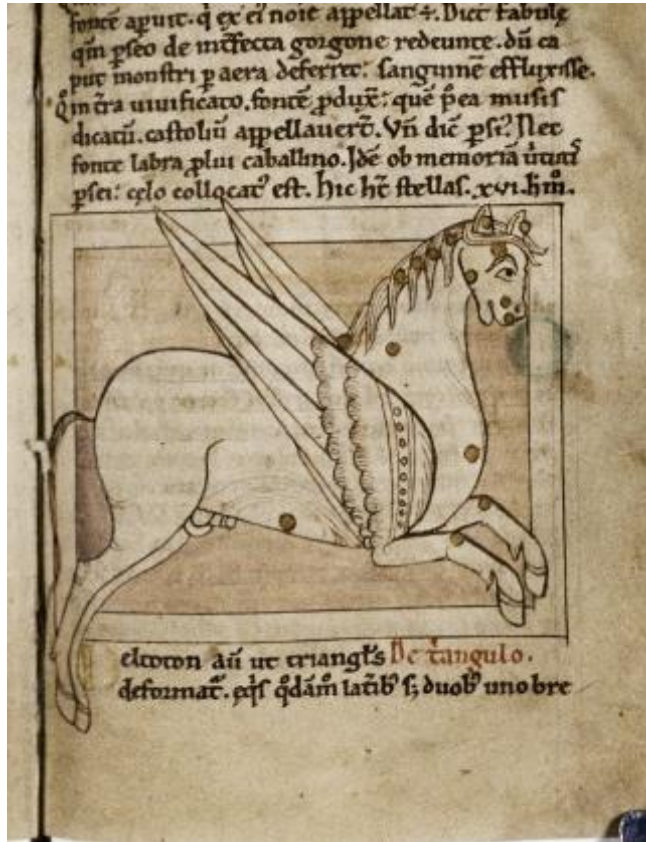 fonte aperuit. q̄ ex ei noīe appellat᷑ ÷. Dict̄ fabulę
qm̄ pseo de īterfecta gorgone redeunte. dū ca
put monstri p aera deferret: sanguinē effluxisse.
Qm̄ t̄ra uiuificato. fontē pdux̄: quē pea musis
dicatū. castoliū appellauert̄. Vn̄ dic̄ psi᷒? Nec
fonte labra plui caballino. Idē ob memoriā
psei: cęlo collocat᷒ est. hic ht̄ stellas. xvi.
eltoton aū ut triangl̄s De t̄angulo.
deformat᷑. ęq̄s q̄dām latib᷒ s; duob᷒ uno bre